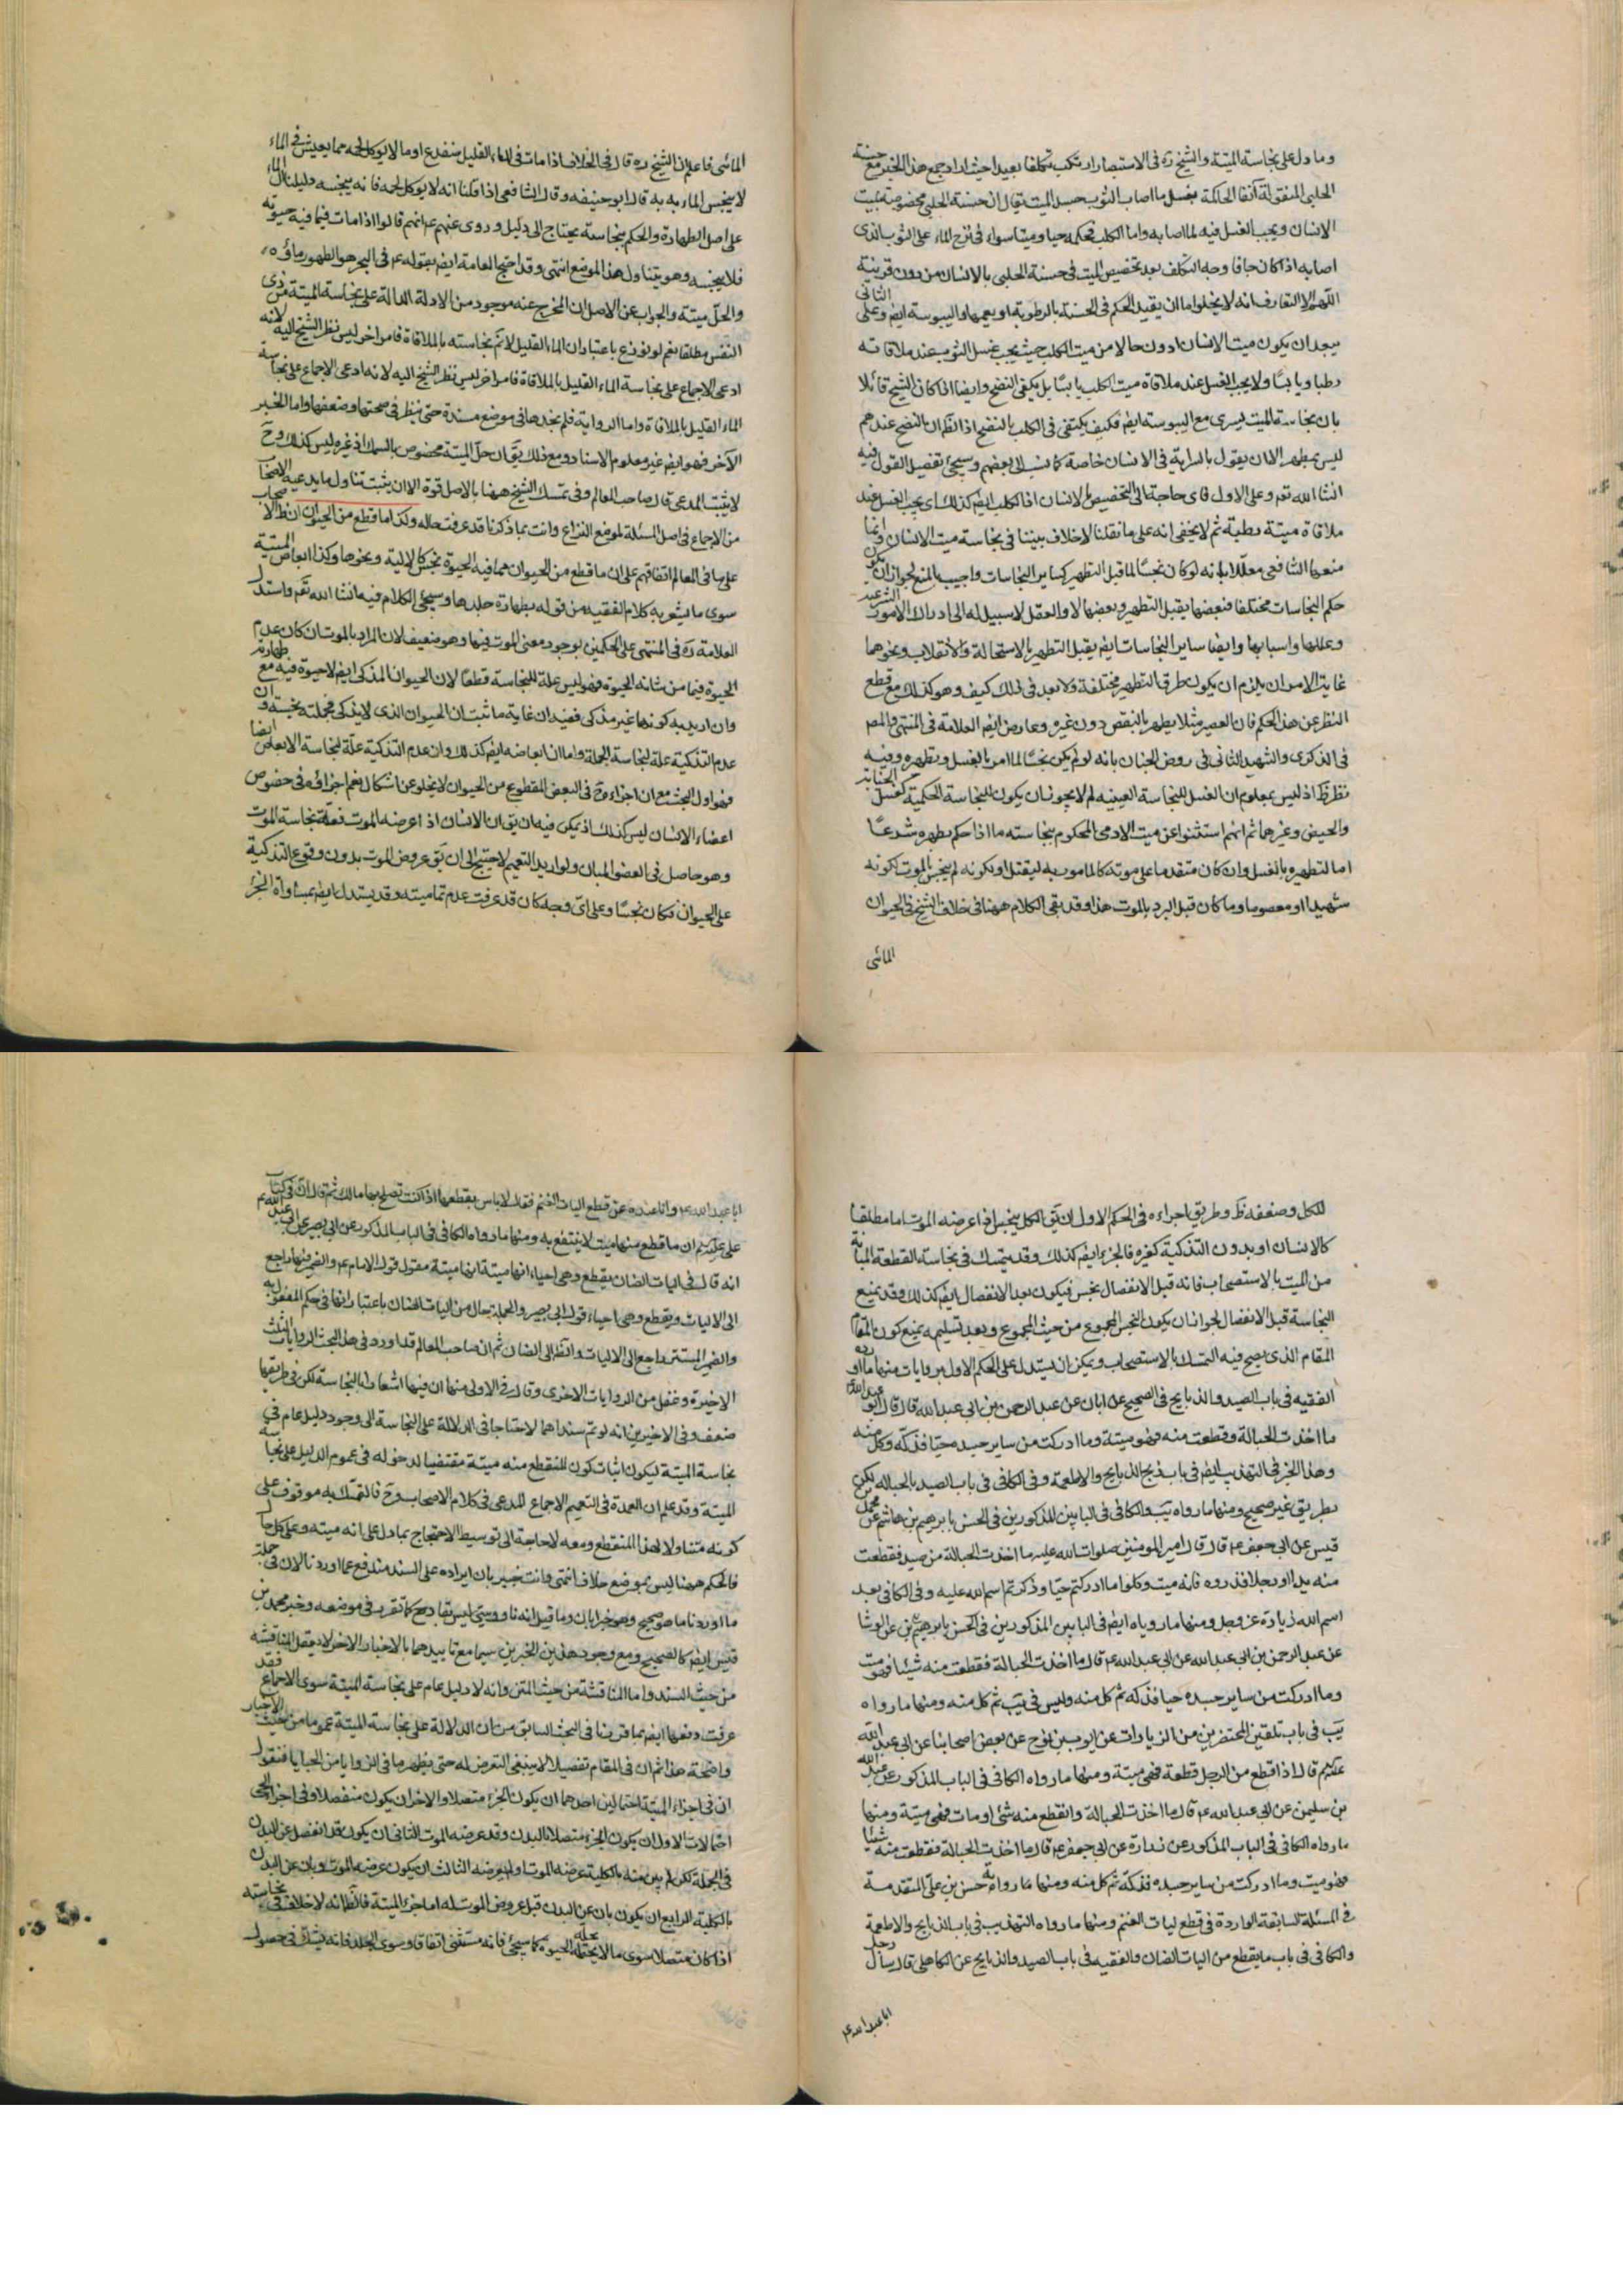 وما دل على نجاسة الميتة والشيخ ره فى الاستبصار ارتكب تكلفا بعيدا حيث اراد جمع هذا الخبر مع حسنة
الحلبى المنقولة آنفا الحاكمة بغسل ما اصاب الثوب جسد الميت قال ان حسنة الحلبى مخصوصة بميت
الانسان ويجب الغسل فيه لما اصابه واما الكلب فحكمه حيا وميتا سواء فى نزح الماء على الثوب الذى
اصابه اذا كان جافا وجه التكلف بعد تخصيص الميت فى حسنة الحلبى بالانسان من دون قرينة
اللهم الا التعارف انه لا يخلو اما ان يقيد الحكم فى الحسنة بالرطوبة او يعمها واليبوسة ايضا وعلى الثانى
يبعد ان يكون ميت الانسان ادون حالا من ميت الكلب حيث يجب غسل الثوب عند ملاقاته
رطبا ويابسا ولا يجب الغسل عند ملاقاة ميت الكلب يابسا بل يكفى النضح وايضا اذا كان الشيخ قائلا
بان نجاسة الميت يسرى مع اليبوسة ايضا فكيف يكتفى فى الكلب بالنضح اذ الظ ان بالنضح عندهم
ليس بمطهر الا ان يقول بالسراية فى الانسان خاصة كما ينسب الى بعضهم وسيجئ تفصيل القول فيه
انشا الله تعم وعلى الاول فاى حاجة الى التخصيص بالانسان اذ الكلب ايضا كذلك اى يجب الغسل عند
ملاقاة ميتة رطبة ثم لا يخفى انه على ما نقلنا لا خلاف بيننا فى نجاسة ميت الانسان وانما
منعها الشافعى معللا بانه لو كان نجسا لما قبل التطهير كساير النجاسات واجيب بالمنع لجواز ان يكون
حكم النجاسات مختلفا فبعضها يقبل التطهير وبعضها لا والعقل لا سبيل له الى ادراك الامور الشرعية
وعللها واسبابها وايضا ساير النجاسات ايضا يقبل التطهير بالاستحالة والانقلاب ونحوهما
غاية الامر ان يلزم ان يكون طرق التطهير مختلفة ولا بعد فى ذلك كيف وهو كذلك مع قطع
النظر عن هذا الحكم فان العصير مثلا يطهر بالنقص دون غيره وعارض ايضا العلامة فى المنتهى والمصم
فى الذكرى والشهيد الثانى فى روض الجنان بانه لو لم يكن نجسا لما امر بالغسل وتطهيره وفيه
نظر ظ اذ ليس بمعلوم ان الغسل للنجاسة العينية لم لا يجوز ان يكون للنجاسة الحكمية كغسل الجنابة
والحيض وغيرهما ثم انهم استثنوا عن ميت الادمى المحكوم بنجاسته ما اذا حكم بطهره شرعا
اما لتطهيره بالغسل وان كان متقدما على موته كالمامور به ليقتل او لكونه لم ينجس بالموت لكونه
شهيدا او معصوما وما كان قبل البرد بالموت هذا وقد بقى الكلام ههنا فى خلاف الشيخ فى الحيوان
المائى
المائى فاعلم ان الشيخ ره قال فى الخلاف اذا مات فى الماء القليل ضفدع او ما لا يوكل لحمه مما يعيش فى الماء
لا ينجس الماء به قال ابو حنيفه وقال الشافعى اذا قلنا انه لا يوكل لحمه فانه ينجسه دليلنا ان الماء
على اصل الطهارة والحكم بنجاسته يحتاج الى دليل وروى عنهم عم انهم قالوا اذا مات فيما فيه حيوته
فلا ينجسه وهو يتناول هذا الموضع انتهى وقد احتج العامة ايضا بقوله عم فى البحر هو الطهور ماؤه
والحل ميتة والجواب عن الاصل ان المخرج عنه موجود من الادلة الدالة على نجاسة الميتة من ذى
النفس مطلقا نعم لو نوزع باعتبار ان الماء القليل لا نم نجاسته بالملاقاة فامر اخر ليس نظر الشيخ اليه لانه
ادعى الاجماع على نجاسة الماء القليل بالملاقاة فامر اخر ليس نظر الشيخ اليه لانه ادعى الاجماع على نجاسة
الماء القليل بالملاقاة واما الرواية فلم نجدها فى موضع مسندة حتى ينظر فى صحتها وضعفها واما الخبر
الآخر فهو ايضا غير معلوم الاسناد ومع ذلك يق ان حل الميتة مخصوص بالسمك اذ غيره ليس كذلك وح
لا يثبت المدعى قال صاحب المعالم وفى تمسك الشيخ ههنا بالاصل قوة الا ان يثبت تناول ما يدعيه الاصحاب
من الاجماع فى اصل المسئلة لموضع النزاع وانت بما ذكرنا قد عرفت حاله وكذا ما قطع من الحيوان ان ظ الا
على ما فى المعالم اتفاقهم على ان ما قطع من الحيوان مما فيه الحيوة نجس كالالية ونحوها وكذا ابعاض الميتة
سوى ما يشعر به كلام الفقيه من قوله بطهارة جلدها وسيجئ الكلام فيه انشا الله تعم واستدل
العلامة ره فى المنتهى على الحكمين بوجود معنى الموت فيها وهو ضعيف لان المراد بالموت ان كان عدم
الحيوة فيما من شانه الحيوة فهو ليس علة للنجاسة قطعا لان الحيوان المذكى ايضا لا حيوة فيه مع طهارته
وان اريد به كونها غير مذكى ففيه ان غاية ما ثبت ان الحيوان الذى لا يذكى فجملته نجسة وان
عدم التذكية علة لنجاسة الجملة واما ان ابعاضه ايضا كذلك وان عدم التذكية علة لنجاسة الابعاض ايضا
فهو اول البحث مع ان اجراءه فى البعض المقطوع من الحيوان لا يخلو عن اشكال نعم اجراؤه فى خصوص
اعضاء الانسان ليس كذلك اذ يمكن فيه ان يق ان الانسان اذا عرضه الموت فعلة نجاسة الموت
وهو حاصل فى العضو المبان ولو اريد التعميم لاحتيج الى ان يق عروض الموت بدون وقوع التذكية
على الحيوان فكان نجسا وعلى اى وجه كان قد عرفت عدم تماميته وقد يستدل ايضا بمساواة الجزء
للكل وضعفه ظ وطريق اجراءه فى الحكم الاول ان يق الكل ينجس اذا عرضه الموت اما مطلقا
كالانسان او بدون التذكية كغيره فالجزء ايضا كذلك وقد يتمسك فى نجاسة القطعة المبانة
من الميت بالاستصحاب فانه قبل الانفصال نجس فيكون بعد الانفصال ايضا كذلك وقد يمنع
النجاسة قبل الانفصال لجواز ان يكون النجس المجموع من حيث المجموع وبعد تسليمه يمنع كون المقام
المقام الذى يصح فيه التمسك بالاستصحاب ويمكن ان يستدل على الحكم الاول بروايات منها ما رواه
الفقيه فى باب الصيد والذبايح فى الصحيح عن ابان عن عبد الرحمن بن ابى عبد الله قال قال ابو عبد الله عم
ما اخذت الحبالة وقطعت منه فهو ميتة وما ادركت من ساير جسده حيا فذكه وكل منه
وهذا الخبر فى التهذيب ايضا فى باب ذبح الذبايح والاطعمة وفى الكافى فى باب الصيد بالحبالة لكن
بطريق غير صحيح ومنها ما رواه يب والكافى فى البابين المذكورين فى الحسن بابرهيم بن هاشم عن محمد بن
قيس عن ابى جعفر عم قال قال امير المومنين صلوات الله عليه ما اخذت الحبالة من صيد فقطعت
منه يدا او رجلا فذروه فانه ميت وكلوا ما ادركتم حيا وذكرتم اسم الله عليه وفى الكافى بعد
اسم الله زيادة عز وجل ومنها ما روياه ايضا فى البابين المذكورين فى الحسن بابرهيم عن الوشا
عن عبد الرحمن بن ابى عبد الله عن ابى عبد الله عم قال ما اخذت الحبالة فقطعت منه شيئا فهو ميت
وما ادركت من ساير جسده حيا فذكه ثم كل منه وليس فى يب ثم كل منه ومنها ما رواه
يب فى باب تلقين المحتضرين من الزيادات عن ايوب بن نوح عن بعض اصحابنا عن ابى عبد الله
عليهم قال اذا قطع من الرجل قطعة فهى ميتة ومنها ما رواه الكافى فى الباب المذكور عن عبد الله
بن سليمن عن ابى عبد الله عم قال ما اخذت الحبالة وانقطع منه شئ او مات فهى ميتة ومنها
ما رواه الكافى فى الباب المذكور عن زرارة عن ابى جعفر عم قال ما اخذت الحبالة فقطعت منه شيئا
فهو ميت وما ادركت من ساير جسده فذكه ثم كل منه ومنها ما رواه حسن بن على المتقدمة
فى المسئلة السابقة الواردة فى قطع اليات الغنم ومنها ما رواه التهذيب فى باب الذبايح والاطعمة
والكافى فى باب ما يقطع من اليات الضان والفقيه فى باب الصيد والذبايح عن الكاهلى قال سأل رجل
ابا عبد الله عم
ابا عبد الله عم وانا عنده عن قطع اليات الغنم فقال لا باس بقطعها اذا كنت تصلح بها مالك ثم قال ان فى كتاب
على عليهم ان ما قطع منها ميت لا ينتفع به ومنها ما رواه الكافى فى الباب المذكور عن ابى بصير عن ابى عبد الله عم
انه قال فى اليات الضان يقطع وهى احياء انها ميتة انها ميتة مقول قول الامام عم والضمير فيها راجع
الى الاليات ويقطع وهى احياء قول ابى بصير والجملة حال من اليات الضان باعتبار انها فى حكم المفعول به
والضمير المستتر راجع الى الاليات والظ الى الضان ثم ان صاحب المعالم قد اورد فى هذا البحث الروايات الثلث
الاخيرة وغفل من الروايات الاخرى وقال فى الاولى منها ان فيها اشعارا بالنجاسة لكن فى طريقها
ضعف وفى الاخيرين انه لو تم سنداهما لاحتاجا فى الدلالة على النجاسة الى وجود دليل عام فى
نجاسة الميتة ليكون اثبات كون المنقطع منه ميتة مقتضيا لدخوله فى عموم الدليل على نجاسة
الميتة وقد علم ان العمدة فى التعميم الاجماع المدعى فى كلام الاصحاب وح فالتمسك به موقوف على
كونه متناولا لهذا المنقطع ومعه لا حاجة الى توسيط الاحتجاج بما دل على انه ميته وعلى كل حال
فالحكم ههنا ليس بموضع خلاف انتهى وانت خبير بان ايراده على السند مندفع عما اوردنا لان فى جملة
ما اوردنا ما هو صحيح وهو خبر ابان وما قيل انه ناووسى ليس بقادح كما تقرر فى موضعه وخبر محمد بن
قيس ايضا كالصحيح ومع وجود هذين الخبرين سيما مع تاييدهما بالاخبار الاخر لا يعقل المناقشه
من حيث السند واما المناقشة من حيث المتن وانه لا دليل عام على نجاسة الميتة سوى الاجماع فقد
عرفت دفعها ايضا بما قررنا فى البحث السابق من ان الدلالة على نجاسة الميتة عموما من حيث الاخبار
واضحة هذا ثم ان فى المقام تفصيلا لا ينبغى التعرض له حتى يظهر ما فى الزوايا من الخبايا فنقول
ان فى اجزاء الميتة احتمالين احدهما ان يكون الجزء متصلا والاخر ان يكون منفصلا وفى اجزاء الحى
احتمالات الاول ان يكون الجزء متصلا بالبدن وقد عرضه الموت الثانى ان يكون قد انفصل عن البدن
فى الجملة لكن لم يبن منه بالكلية عرضه الموت او لم يعرضه الثالث ان يكون عرضه الموت وبان عن البدن
بالكلية الرابع ان يكون بان عن البدن قبل عروض الموت له اما جزء الميتة فالظ انه لا خلاف فى نجاسته
اذا كان متصلا سوى ما لا يحتمله الحيوة كما سيجئ فانه مستثنى اتفاقا وسوى الجلد فانه يشك فى حصول